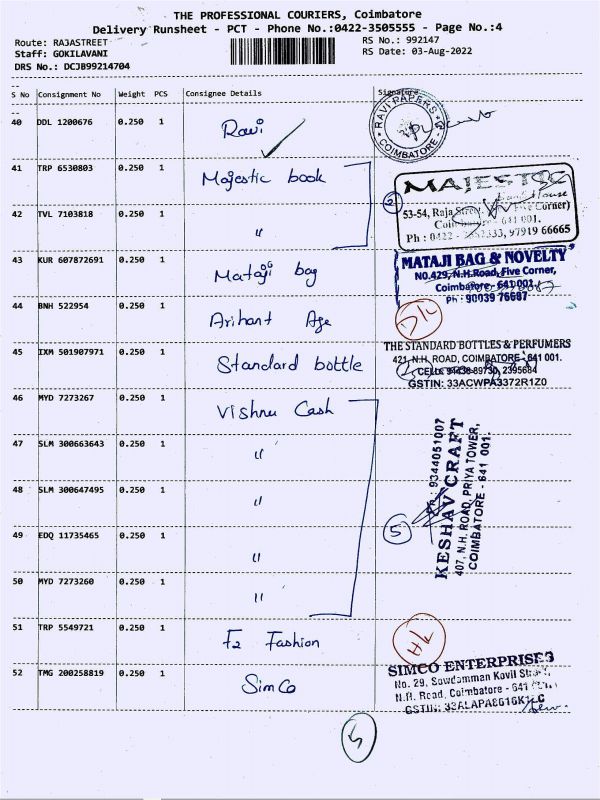 THE PROFESSIONAL COURIERS, Coimbatore
Delivery Runsheet - PCT - Phone No.:0422-3505555 - Page No.:4
Route: RAJASTREET
RS No.: 992147
Staff: GOKILAVANI
RS Date: 03-Aug-2022
DRS No.: DCJB99214704
S No Consignment No Weight PCS Consignee Details Signature
40 DDL 1200676 0.250 1 Ravi
RAVI PAPERS
COIMBATORE
41 TRP 6530803 0.250 1 Majestic book
2
MAJESTIC
53-54, Raja Street, (Five Corner)
Coimbatore - 641 001.
Ph : 0422 - 97919 66665
42 TVL 7103818 0.250 1 "
43 KUR 607872691 0.250 1 Mataji bag
MATAJI BAG & NOVELTY
NO.429, N.H.Road, Five Corner,
Coimbatore - 641 001.
Ph : 90039 76687
44 BNH 522954 0.250 1 Arihant Age
D/L
45 IXM 501907971 0.250 1 Standard bottle
THE STANDARD BOTTLES & PERFUMERS
421, N.H. ROAD, COIMBATORE - 641 001.
2395684
GSTIN: 33ACWPA3372R1Z0
46 MYD 7273267 0.250 1 Vishnu Cash
47 SLM 300663643 0.250 1 "
48 SLM 300647495 0.250 1 "
49 EDQ 11735465 0.250 1 "
50 MYD 7273260 0.250 1 "
5
Ph : 9344051007
KESHAV CRAFT
407, N.H. ROAD, PRIYA TOWER,
COIMBATORE - 641 001.
51 TRP 5549721 0.250 1 F2 Fashion
52 TMG 200258819 0.250 1 Simco
SIMCO ENTERPRISES
No. 29, Sowdamman Kovil Street,
N.H. Road, Coimbatore - 641
GSTIN: